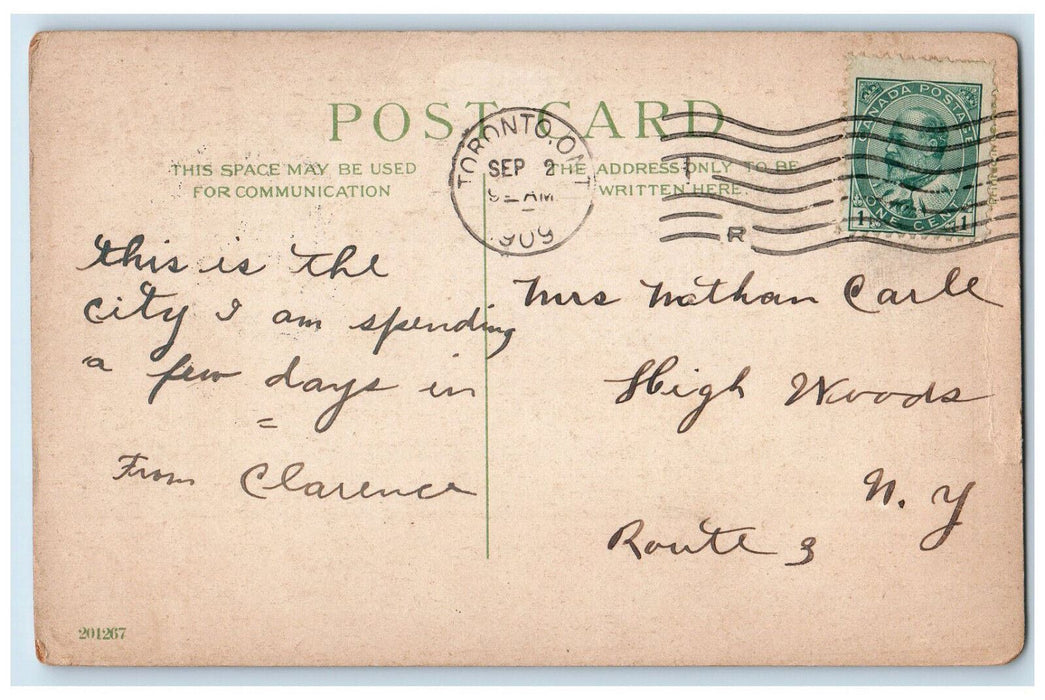 POST CARD
THIS SPACE MAY BE USED
FOR COMMUNICATION
THE ADDRESS ONLY TO BE
WRITTEN HERE.
TORONTO, ONT
SEP 2
AM
1909
R
CANADA POSTAGE
ONE CENT
1 1
this is the
city I am spending
a few days in
=
From Clarence
Mrs Nathan Carle
High Woods
N. Y
Route 3
201267